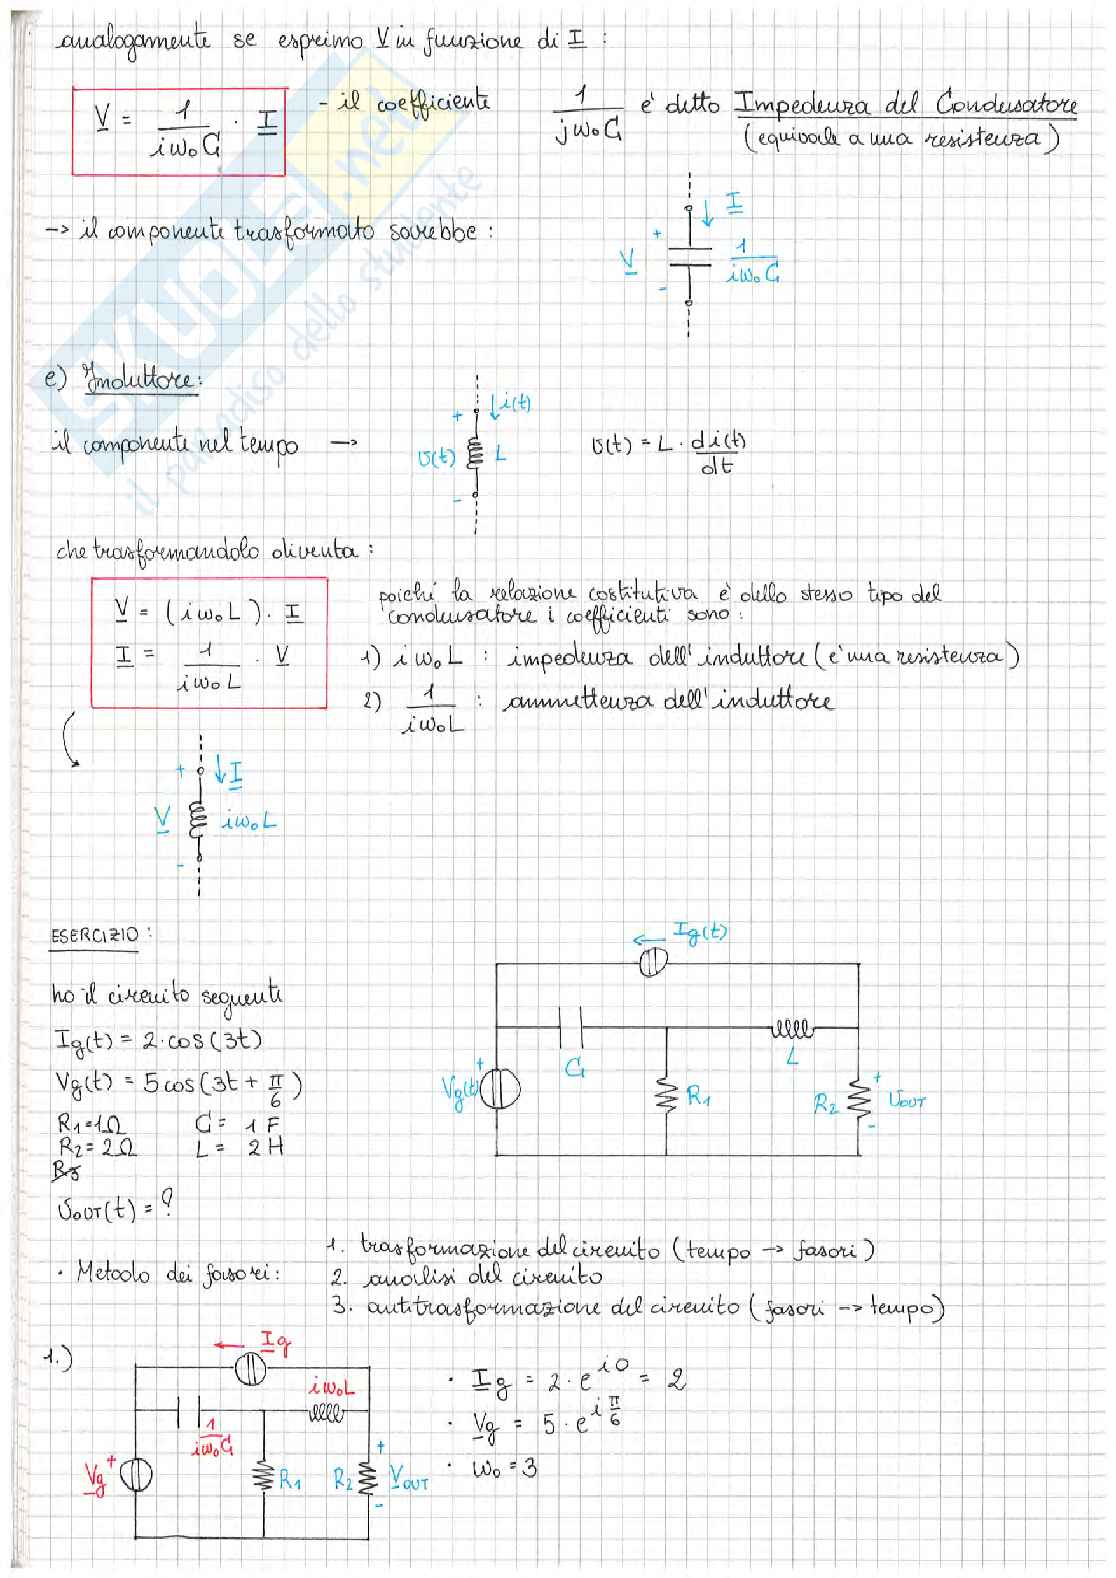 analogamente se esprimo V in funzione di I :
V = 1/(iω₀C) · I - il coefficiente 1/(jω₀C) e' detto Impedenza del Condensatore
(equivale a una resistenza)
-> il componente trasformato sarebbe :
I
+
V 1/(iω₀C)
-
e) Induttore:
+ i(t)
il componente nel tempo -> v(t) L v(t) = L · di(t)/dt
-
che trasformandolo diventa :
V = (iω₀L) · I
I = 1/(iω₀L) · V
poiché la relazione costitutiva è dello stesso tipo del
condensatore i coefficienti sono:
1) iω₀L : impedenza dell'induttore (e' una resistenza)
2) 1/(iω₀L) : ammettenza dell'induttore
+ I
V iω₀L
-
ESERCIZIO :
Ig(t)
ho il circuito seguente
Ig(t) = 2·cos(3t)
Vg(t) = 5cos(3t + π/6)
R₁=1Ω C = 1F
R₂=2Ω L = 2H
R₃
vOUT(t) = ?
C L
+ Vg(t) R₁ R₂ + vOUT -
· Metodo dei fasori:
1. trasformazione del circuito (tempo -> fasori)
2. analisi del circuito
3. antitrasformazione del circuito (fasori -> tempo)
1.)
Ig
iω₀L
1/(iω₀C)
Vg + R₁ R₂ + VOUT -
· Ig = 2·e^(i0) = 2
· Vg = 5·e^(iπ/6)
· ω₀=3
SKUOLA.net
il paradiso dello studente